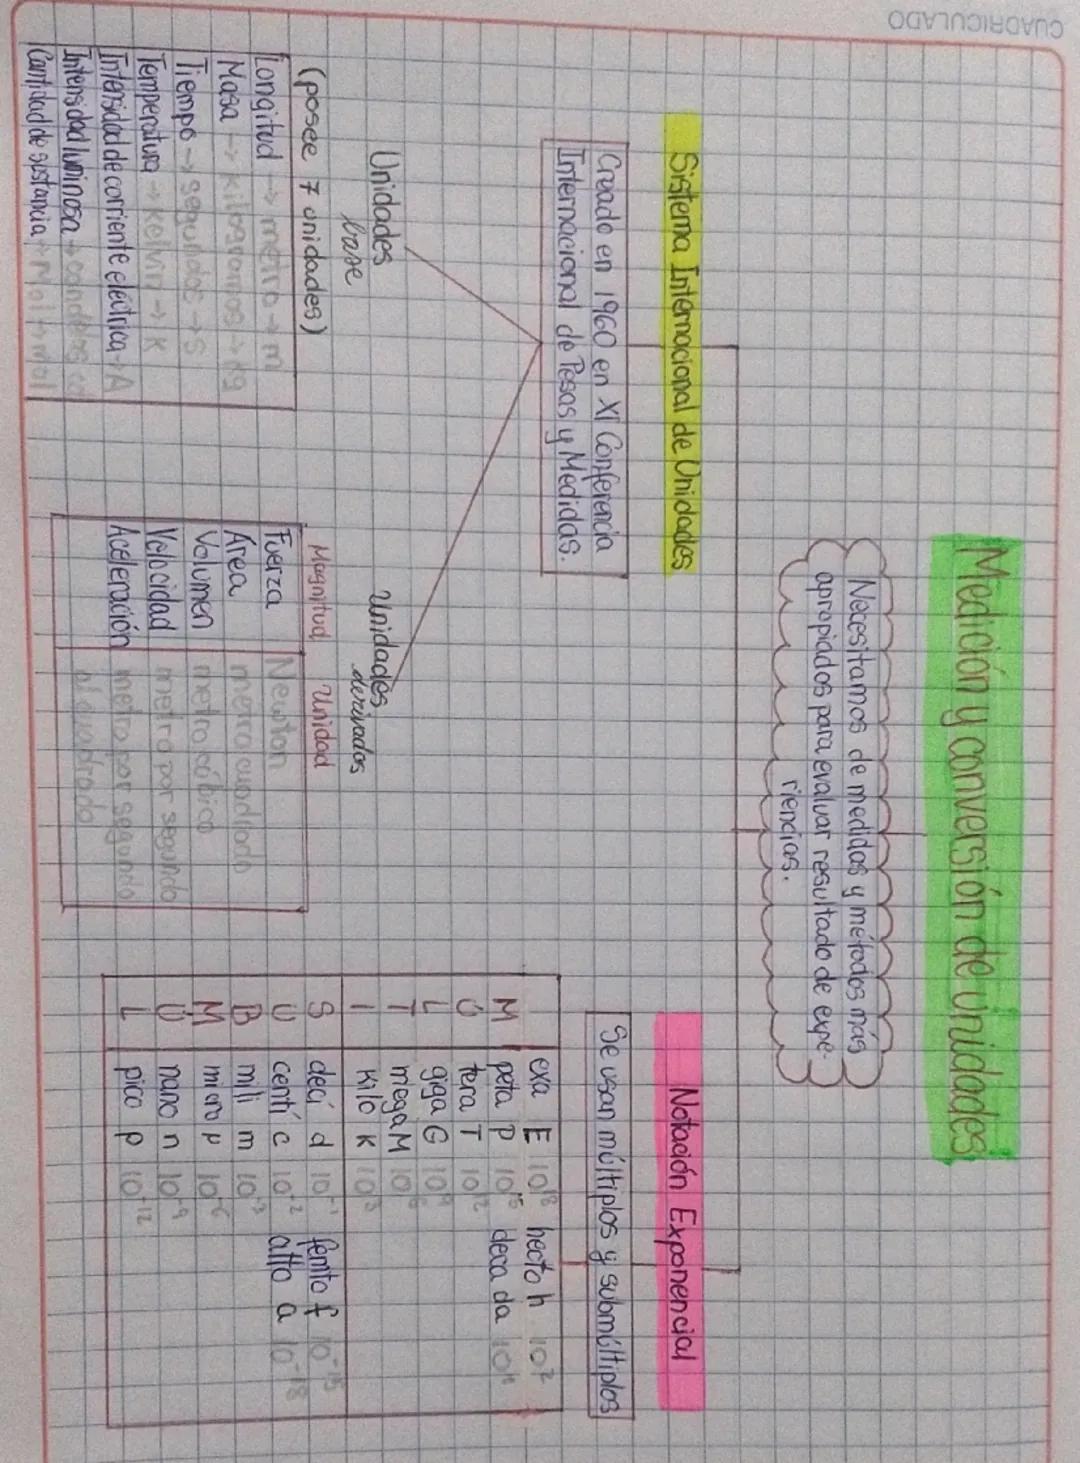 CUADRICULADO
Medición y conversión de unidades
Necesitamos de medidas y métodos más
apropiados para evaluar resultado de expe-
riencias.
Sistema Internacional de Unidades
Creado en 1960 en XI Conferencia
Internacional de Pesas y Medidas.
Unidades
base
(posee 7 unidades)
Longitud → metro → m
Masa → kilogramos → kg
Tiempo → segundos → s
Temperatura → kelvin → K
Intensidad de corriente eléctrica → A
Intensidad luminosa → candelas cd
Cantidad de sustancia → Mol → mol
Unidades
derivadas
Magnitud Unidad
Fuerza Newton
Área metro cuadrado
Volumen metro cúbico
Velocidad metro por segundo
Aceleración metro por segundo
al cuadrado
Notación Exponencial
Se usan múltiplos y submúltiplos
exa E 10¹⁸ hecto h 10²
M peta P 10¹⁵ deca da 10¹
Ú tera T 10¹²
L giga G 10⁹
T mega M 10⁶
I kilo K 10³
S deci d 10⁻¹ femto f 10⁻¹⁵
U centi c 10⁻² atto a 10⁻¹⁸
B mili m 10⁻³
M micro µ 10⁻⁶
Ú nano n 10⁻⁹
L pico p 10⁻¹²